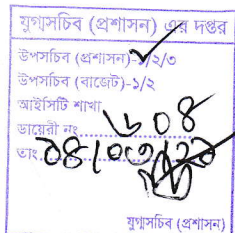 যুগ্মসচিব (প্রশাসন) এর দপ্তর
উপসচিব (প্রশাসন)-১/২/৩
উপসচিব (বাজেট)-১/২
আইসিটি শাখা
ডায়েরী নং
তাং
যুগ্মসচিব (প্রশাসন)